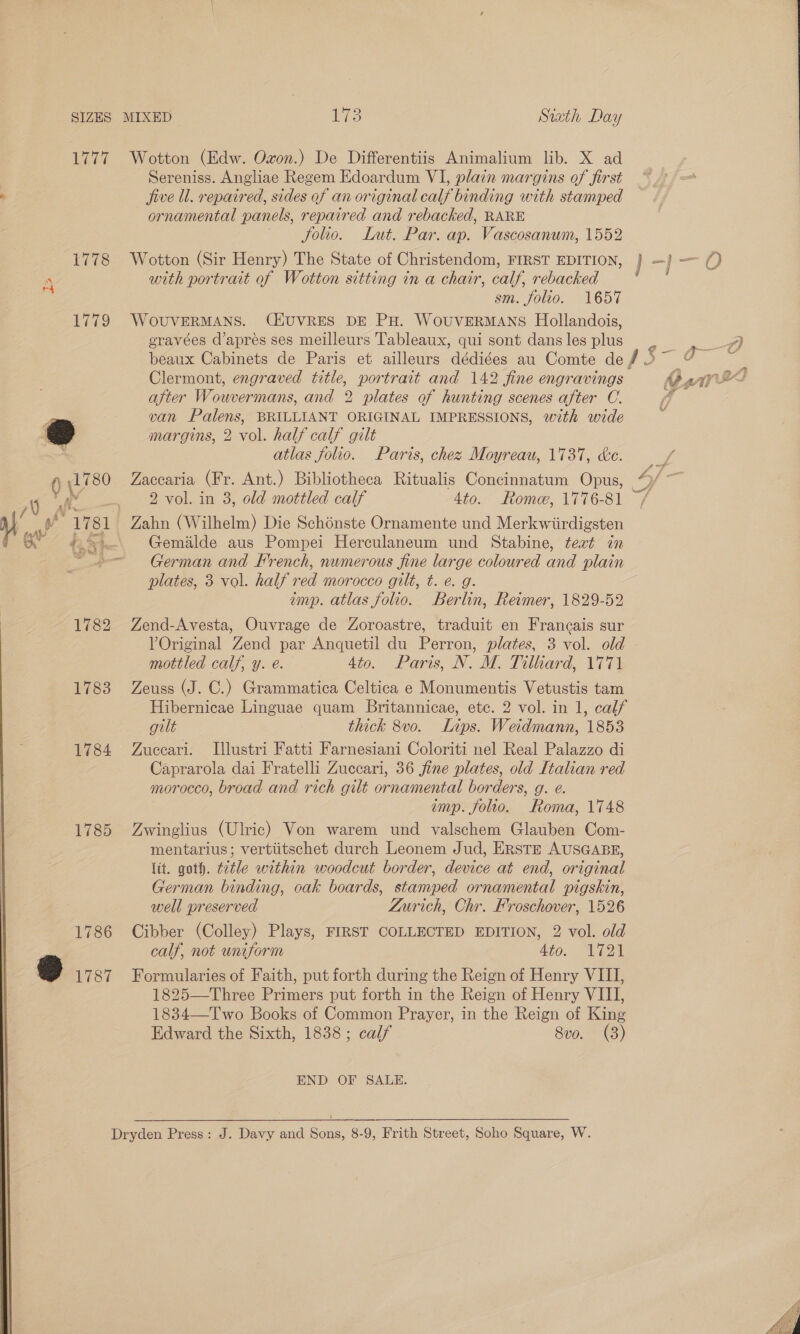 SIZES MIXED 173 Sixth Day
1777 Wotton (Edw. Oxon.) De Differentiis Animalium lib. X ad
Sereniss. Angliae Regem Edoardum VI, plain margins of first
five ll. repaired, sides of an original calf binding with stamped
ornamental panels, repaired and rebacked, RARE
folio. Lut. Par. ap. Vascosanum, 1552
1778 Wotton (Sir Henry) The State of Christendom, FIRST EDITION,
with portrait of Wotton sitting in a chair, calf, rebacked
sm. folio. 1657
1779 WOUVERMANS. ŒUVRES DE PH. WOUVERMANS Hollandois,
gravées d'après ses meilleurs Tableaux, qui sont dans les plus
beaux Cabinets de Paris et ailleurs dédiées au Comte de
Clermont, engraved title, portrait and 142 fine engravings
after Wouvermans, and 2 plates of hunting scenes after C.
van Falens, BRILLIANT ORIGINAL IMPRESSIONS, with wide
margins, 2 vol. half calf gilt
atlas folio. Paris, chez Moyreau, 1737, &c.
1780 Zaccaria (Fr. Ant.) Bibliotheca Ritualis Concinnatum Opus,
2 vol. in 3, old mottled calf 4to. Romæ, 1776-81
1781 Zahn (Wilhelm) Die Schönste Ornamente und Merkwürdigsten
Gemälde aus Pompei Herculaneum und Stabine, text in
German and French, numerous fine large coloured and plain
plates, 3 vol. half red morocco gilt, t. e. g.
imp. atlas folio. Berlin, Reimer, 1829-52
1782 Zend-Avesta, Ouvrage de Zoroastre, traduit en Français sur
l'Original Zend par Anquetil du Perron, plates, 3 vol. old
mottled calf, y. e. 4to. Paris, N. M. Tilliard, 1771
1783 Zeuss (J. C.) Grammatica Celtica e Monumentis Vetustis tam
Hibernicae Linguae quam Britannicae, etc. 2 vol. in 1, calf
gilt thick 8vo. Lips. Weidmann, 1853
1784 Zuccari. Illustri Fatti Farnesiani Coloriti nel Real Palazzo di
Caprarola dai Fratelli Zuccari, 36 fine plates, old Italian red
morocco, broad and rich gilt ornamental borders, g. e.
imp. folio. Roma, 1748
1785 Zwinglius (Ulric) Von warem und valschem Glauben Com-
mentarius; vertütschet durch Leonem Jud, ERSTE AUSGABE,
lit. goth. title within woodcut border, device at end, original
German binding, oak boards, stamped ornamental pigskin,
well preserved Zurich, Chr. Froschover, 1526
1786 Cibber (Colley) Plays, FIRST COLLECTED EDITION, 2 vol. old
calf, not uniform 4to. 1721
1787 Formularies of Faith, put forth during the Reign of Henry VIII,
1825—Three Primers put forth in the Reign of Henry VIII,
1834—Two Books of Common Prayer, in the Reign of King
Edward the Sixth, 1838; calf 8vo. (3)
END OF SALE.
Dryden Press: J. Davy and Sons, 8-9, Frith Street, Soho Square, W.